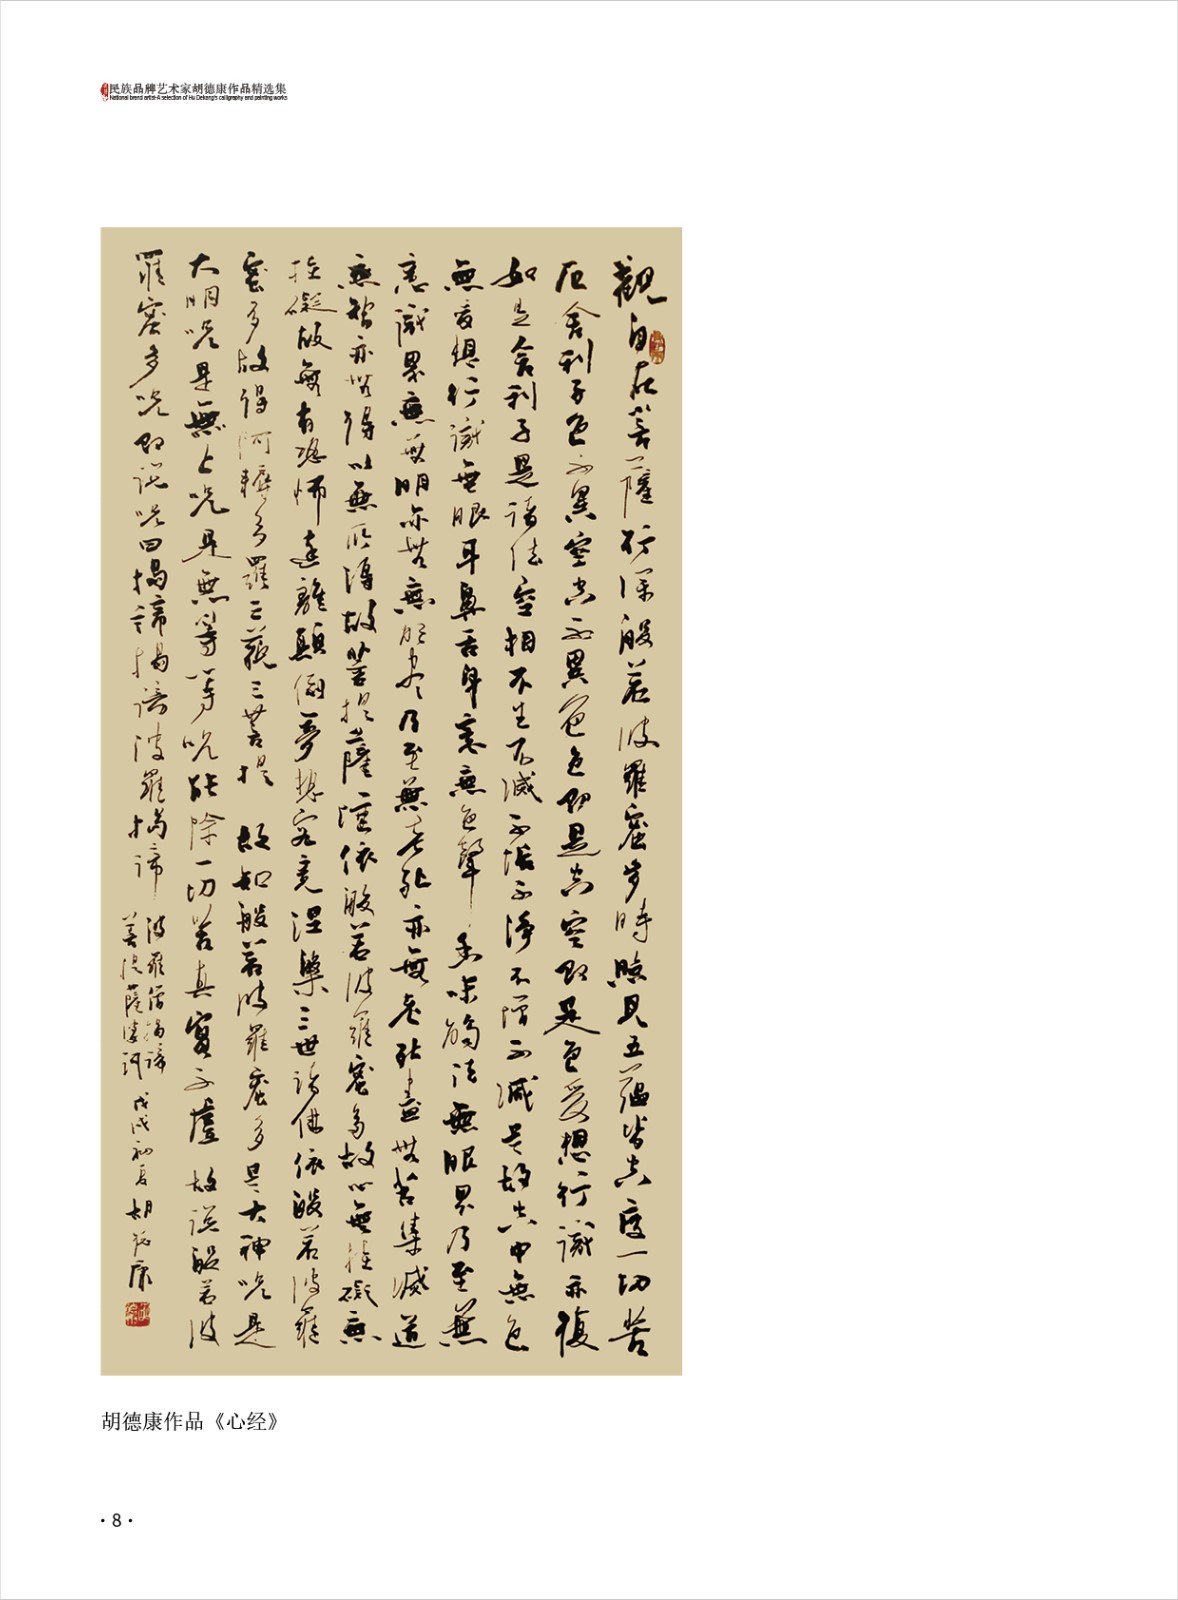 民族品牌艺术家胡德康作品精选集
National brand artist-A selection of Hu Dekang's calligraphy and painting works
觀自在菩薩行深般若波羅蜜多時照見五蘊皆空度一切苦
厄舍利子色不異空空不異色色即是空空即是色受想行識亦復
如是舍利子是諸法空相不生不滅不垢不淨不增不減是故空中無色
無受想行識無眼耳鼻舌身意無色聲香味觸法無眼界乃至無
意識界無無明亦無無明盡乃至無老死亦無老死盡無苦集滅道
無智亦無得以無所得故菩提薩陲依般若波羅蜜多故心無挂礙無
挂礙故無有恐怖遠離顛倒夢想究竟涅槃三世諸佛依般若波羅
蜜多故得阿耨多羅三藐三菩提 故知般若波羅蜜多是大神咒是
大明咒是無上咒是無等等咒能除一切苦真實不虛故說般若波
羅蜜多咒即說咒曰揭諦揭諦波羅揭諦
波羅僧揭諦
菩提薩婆訶
戊戌初夏胡德康
胡德康作品《心经》
·8·